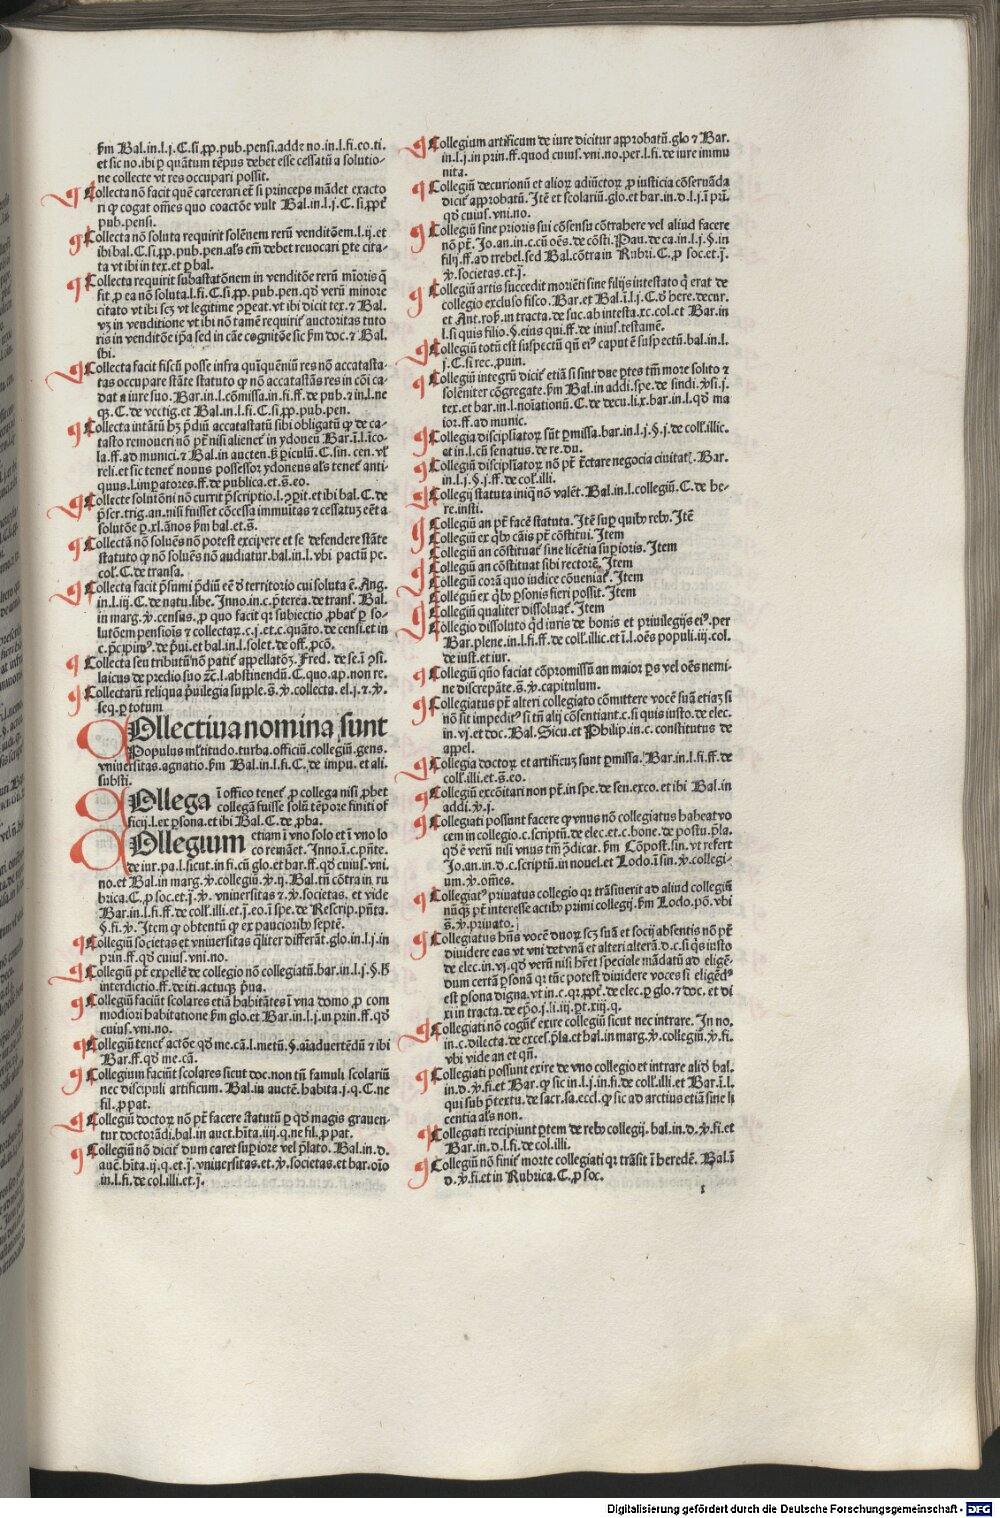 ẜm Bal.in.l.j.C.si ꝓp.pub.pensi.addꝛ no.in.l.fi.co.ti.
et sic no.ibi ꝑ quãtum tẽpus debet esse cessatũ a solutio-
ne collecte vt res occupari possit.
Collecta nõ facit quẽ carcerari et̃ si princeps mãdet exacto
ri ꝙ cogat oṁes quo coactõe vult Bal.in.l.j.C.si.ꝓpt̃
pub.pensi.
Collecta nõ soluta requirit solẽnem rerũ venditõem.l.ij.et
ibi bal.C.si.ꝓp.pub.pen.al̃s em̃ debet reuocari ꝑte cita-
ta vt ibi in tex.et ꝑ bal.
Collecta requirit subastatõnem in venditõe rerũ mĩoris q̃
fit ꝓ ea nõ soluta.l.fi.C.si.ꝓp.pub.pen.qđ verũ minore
citato vt ibi scꝫ vt legitime ꝯpeat.vt ibi dicit tex.⁊ Bal.
vꝫ in venditione vt ibi nõ tamẽ requirit̃ auctoritas tuto
ris in venditõe ip̃a sed in cãe cognitõe sic ẜm doc.⁊ Bal.
ibi.
Collecta facit fiscũ posse infra quĩquẽniũ res nõ accatasta-
tas occupare stãte statuto ꝙ nõ accatastãs res in cõi ca-
dat a iure suo.Bar.in.l.cõmissa.in fi.ff.de pub.⁊ in.l.ne
qꝫ.C.de vectig.et Bal.in.l.fi.C.si.ꝓp.pub.pen.
Collecta intãtũ hꝫ p̃diũ accatastatũ sibi obligatũ ꝙ de ca-
tasto remoueri nõ pt̃ nisi alienet̃ in ydoneũ Bar.ĩ.l.ĩco-
la.ff.ad munici.⁊ Bal.in aucten.ẜ piculũ.C.sin.cen.vl̃
reli.et sic tenet̃ nouus possessor ydoneus al̃s tenet̃ anti-
quus.l.imꝑatores.ff.de publica.et.s̃.eo.
Collecte solutõni nõ currit p̃scriptio.l.ꝯpit.et ibi bal.C.de
p̃scr.trig.an.nisi fuisset cõcessa immuitas ⁊ cessatuꝫ eẽt a
solutõe ꝑ.xl.ãnos ẜm bal.et.s̃.
Collectã nõ soluẽs nõ potest excipere et se defendere stãte
statuto ꝙ nõ soluẽs nõ audiatur.bal.in.l.vbi pactũ pe.
col.C.de transa.
Collecta facit p̃sumi p̃diũ eẽ đ territorio cui soluta ẽ.Ang.
in.l.iij.C.de natu.libe.Inno.in.c.p̃terea.de trans.Bal.
in marg.ꝟ.census.ꝓ quo facit qꝛ subiectio ꝓbat̃ ꝑ so-
lutõem pensiõis ⁊ collectaꝝ.c.j.et.c.quãto.de censi.et in
c.p̃cipimꝰ.de p̃ui.et bal.in.l.solet.de off.ꝓcõ.
Collecta seu tributũ nõ patit̃ appellatõꝫ.Fred.de se.ĩ ꝯsi.
laicus de predio suo ⁊c.l.abstinendũ.C.quo.ap.non re.
Collectarũ reliqua p̃uilegia supple.s̃.ꝟ.collecta.el.j.⁊.ꝟ.
seq.ꝑ totum
Ollectiua nomina sunt
Populus ml̃titudo.turba.officiũ.collegiũ.gens.
vniuersitas.agnatio.ẜm Bal.in.l.fi.C.de impu.et ali.
substi.
Ollega ĩ offico tenet̃ ꝓ collega nisi ꝓbet
collegã fuisse solũ tẽpore finiti of
ficij.l.ex ꝑsona.et ibi Bal.C.de ꝓba.
Ollegium etiam ĩ vno solo et ĩ vno lo
co remãet.Inno.ĩ.c.pñte.
de iur.pa.l.sicut.in fi.cũ glo.et bar.ff.qđ cuius.vni.
no.et Bal.in marg.ꝟ.collegiũ.ꝟ.ij.Bal.tñ cõtra in ru
brica.C.ꝓ soc.et.j.ꝟ.vniuersitas ⁊.ꝟ.societas.et vide
Bar.in.l.fi.ff.de coll̃.illi.et.j.eo.ĩ spe.de Rescrip.pñta.
§.fi.ꝟ.Item ꝙ obtentũ ꝙ ex paucioribꝰ septẽ.
Collegiũ societas et vniuersitas qĺiter differãt.glo.in.l.j.in
prin.ff.qđ cuius.vni.no.
Collegiũ pt̃ expelle̊ de collegio nõ collegiatũ.bar.in.l.j.§.ẜ
interdictio.ff.de iti.actuqꝫ p̃ua.
Collegiũ faciũt scolares etiã habitãtes ĩ vna domo ꝓ com
modiori habitatione ẜm glo.et Bar.in.l.j.in prin.ff.qđ
cuius.vni.no.
Collegiũ tenet̃ actõe qđ me.cã.l.metũ.§.aĩaduertẽdũ ⁊ ibi
Bar.ff.qđ me.cã.
Collegium faciũt scolares sicut doc.non tñ famuli scolariũ
nec discipuli artificum.Bal.in auctẽ.habita.j.q.C.ne
fil.ꝓ pat.
Collegiũ doctoꝝ nõ pt̃ facere statutũ ꝑ qđ magis grauen-
tur doctorãdi.bal.in auct.hĩta.iiij.q.ne fil.ꝓ pat.
Collegiũ nõ dicit̃ dum caret suꝑiore vel p̃lato.Bal.in.d.
auct̃.hĩta.ij.q.et.j.vniuersitas.et.ꝟ.societas.et bar.oĩo
in.l.fi.de col.illi.et.j.
Collegium artificum de iure dicitur approbatũ.glo ⁊ Bar.
in.l.j.in prin.ff.quod cuius.vni.no.per.l.fi.de iure immu
nita.
Collegiũ decurionũ et alioꝝ adiũctoꝝ ꝓ iusticia cõseruãda
dicit̃ approbatũ.Itẽ et scolariũ.glo.et bar.in.d.l.j.ĩ prĩ.
qđ cuius.vni.no.
Collegiũ sine prioris sui cõsensu cõtrahere vel aliud facere
nõ pt̃.Jo.an.in.c.cũ oẽs.de cõsti.Pau.de ca.in.l.j.§.in
filij.ff.ad trebel.sed Bal.cõtra in Rubri.C.ꝓ soc.et.j.
ꝟ.societas.et.j.
Collegiũ artis succedit moriẽti sine filijs intestato q̃ erat de
collegio excluso fisco.Bar.et Bal.ĩ.l.j.C.đ here.decur.
et Ant.roẜ.in tracta.de suc.ab intesta.xc.col.et Bar.in
l.si quis filio.§.eius qui.ff.de inius.testamẽ.
Collegiũ totũ est suspectũ qñ eiꝰ caput ẽ suspectũ.bal.in.l.
j.C.si rec.ꝓuin.
Collegiũ integrũ dicit̃ etiã si sint due ꝑtes tm̃ more solito ⁊
solẽniter cõgregate.ẜm Bal.in addi.spe.de sindi.ꝟsi.j.
tex.et bar.in.l.noĩationũ.C.de decu.li.x.bar.in.l.qđ ma
ior.ff.ad munic.
Collegia disciplĩatoꝝ sũt ꝑmissa.bar.in.l.j.§.j.de coll̃.illic.
et in.l.cũ senatus.de re.du.
Collegiũ disciplĩatoꝝ nõ pt̃ t̃ctare negocia ciuitat̃.Bar.
in.l.j.§.j.ff.de col̃.illi.
Collegij statuta iniq̃ nõ valẽt.Bal.in.l.collegiũ.C.de he-
re.insti.
Collegiũ an pt̃ face̊ statuta.Itẽ suꝑ quibꝰ rebꝰ.Itẽ
Collegiũ ex qĩbꝰ cãis pt̃ cõstitui.Item
Collegiũ an cõstituat̃ sine licẽtia suꝑioris.Item
Collegiũ an cõstituat sibi rectorẽ.Item
Collegiũ corã quo iudice cõueniat̃.Item
Collegiũ ex qĩbꝰ ꝑsonis fieri possit.Item
Collegiũ qualiter dissoluat̃.Item
Collegio dissoluto qđ iuris de bonis et priuilegijs eiꝰ.per
Bar.plene.in.l.fi.ff.de coll̃.illic.et ĩ.l.oẽs populi.iij.col.
de iust.et iur.
Collegiũ qũo faciat cõpromissũ an maior ꝑs vel oẽs nemi-
ne discrepãte.s̃.ꝟ.capitulum.
Collegiatus pt̃ alteri collegiato cõmittere vocẽ suã etiaꝫ si
nõ sit impeditꝰ si tñ alij cõsentiant.c.si quis iusto.de elec.
in.vj.et doc.Bal.Sicu.et Philip.in.c.constitutus de
appel.
Collegia doctoꝝ et artificuꝫ sunt ꝑmissa.Bar.in.l.fi.ff.de
coll̃.illi.et.s̃.eo.
Collegiũ excõitari non pt̃.in spe.de sen.exco.et ibi Bal.in
addi.ꝟ.j.
Collegiati possunt facere ꝙ vnus nõ collegiatus habeat vo
cem in collegio.c.scriptũ.de elec.et.c.bone.de postu.p̃la.
qđ ẽ verũ nisi vnus tm̃ p̃dicat.ẜm Cõpost.sin.vt refert
Jo.an.in.d.c.scriptũ.in nouel.et Lodo.ĩ sin.ꝟ.collegi-
um.ꝟ.oṁes.
Collegiatꝰ priuatus collegio qꝛ trãsiuerit ad aliud collegiũ
nũꝗ pt̃ interesse actibꝰ primi collegij.ẜm Lodo.põ.vbi
s̃.ꝟ.priuato.
Collegiatus hñs vocẽ duoꝝ scꝫ suã et socij absentis nõ pt̃
diuidere eas vt vni det vnã et alteri alterã.d.c.si q̃s iusto
de elec.in.vj.qđ verũ nisi hr̃et speciale mãdatũ ad eligẽ-
dum certã ꝑsonã qꝛ tũc potest diuidere voces si eligẽdꝰ
est ꝑsona digna.vt in.c.qꝛ.ꝓpt̃.de elec.ꝑ glo.⁊ doc.et di
xi in tracta.de ep̃o.j.li.iij.ꝑt.xiij.q.
Collegiati nõ cogũt̃ exire collegiũ sicut nec intrare.In no.
in.c.dilecta.de exces.p̃la.et bal.in marg.ꝟ.collegiũ.ꝟ.fi.
vbi vide an et qñ.
Collegiati possunt exire de vno collegio et intrare aliđ bal.
in.d.ꝟ.fi.et Bar.ꝙ sic in.l.j.in.fi.de coll̃.illi.et Bar.ĩ.l.
qui sub p̃textu.de sacr.sa.eccl.ꝙ sic ad arctius etiã sine li
centia al̃s non.
Collegiati recipiunt ꝑtem de rebꝰ collegij.bal.in.d.ꝟ.fi.et
Bar.in.d.l.fi.de col.illi.
Collegiũ nõ finit̃ morte collegiati qꝛ trãsit ĩ heredẽ.Bal.ĩ
d.ꝟ.fi.et in Rubrica.C.ꝓ soc.
Digitalisierung gefördert durch die Deutsche Forschungsgemeinschaft - DFG